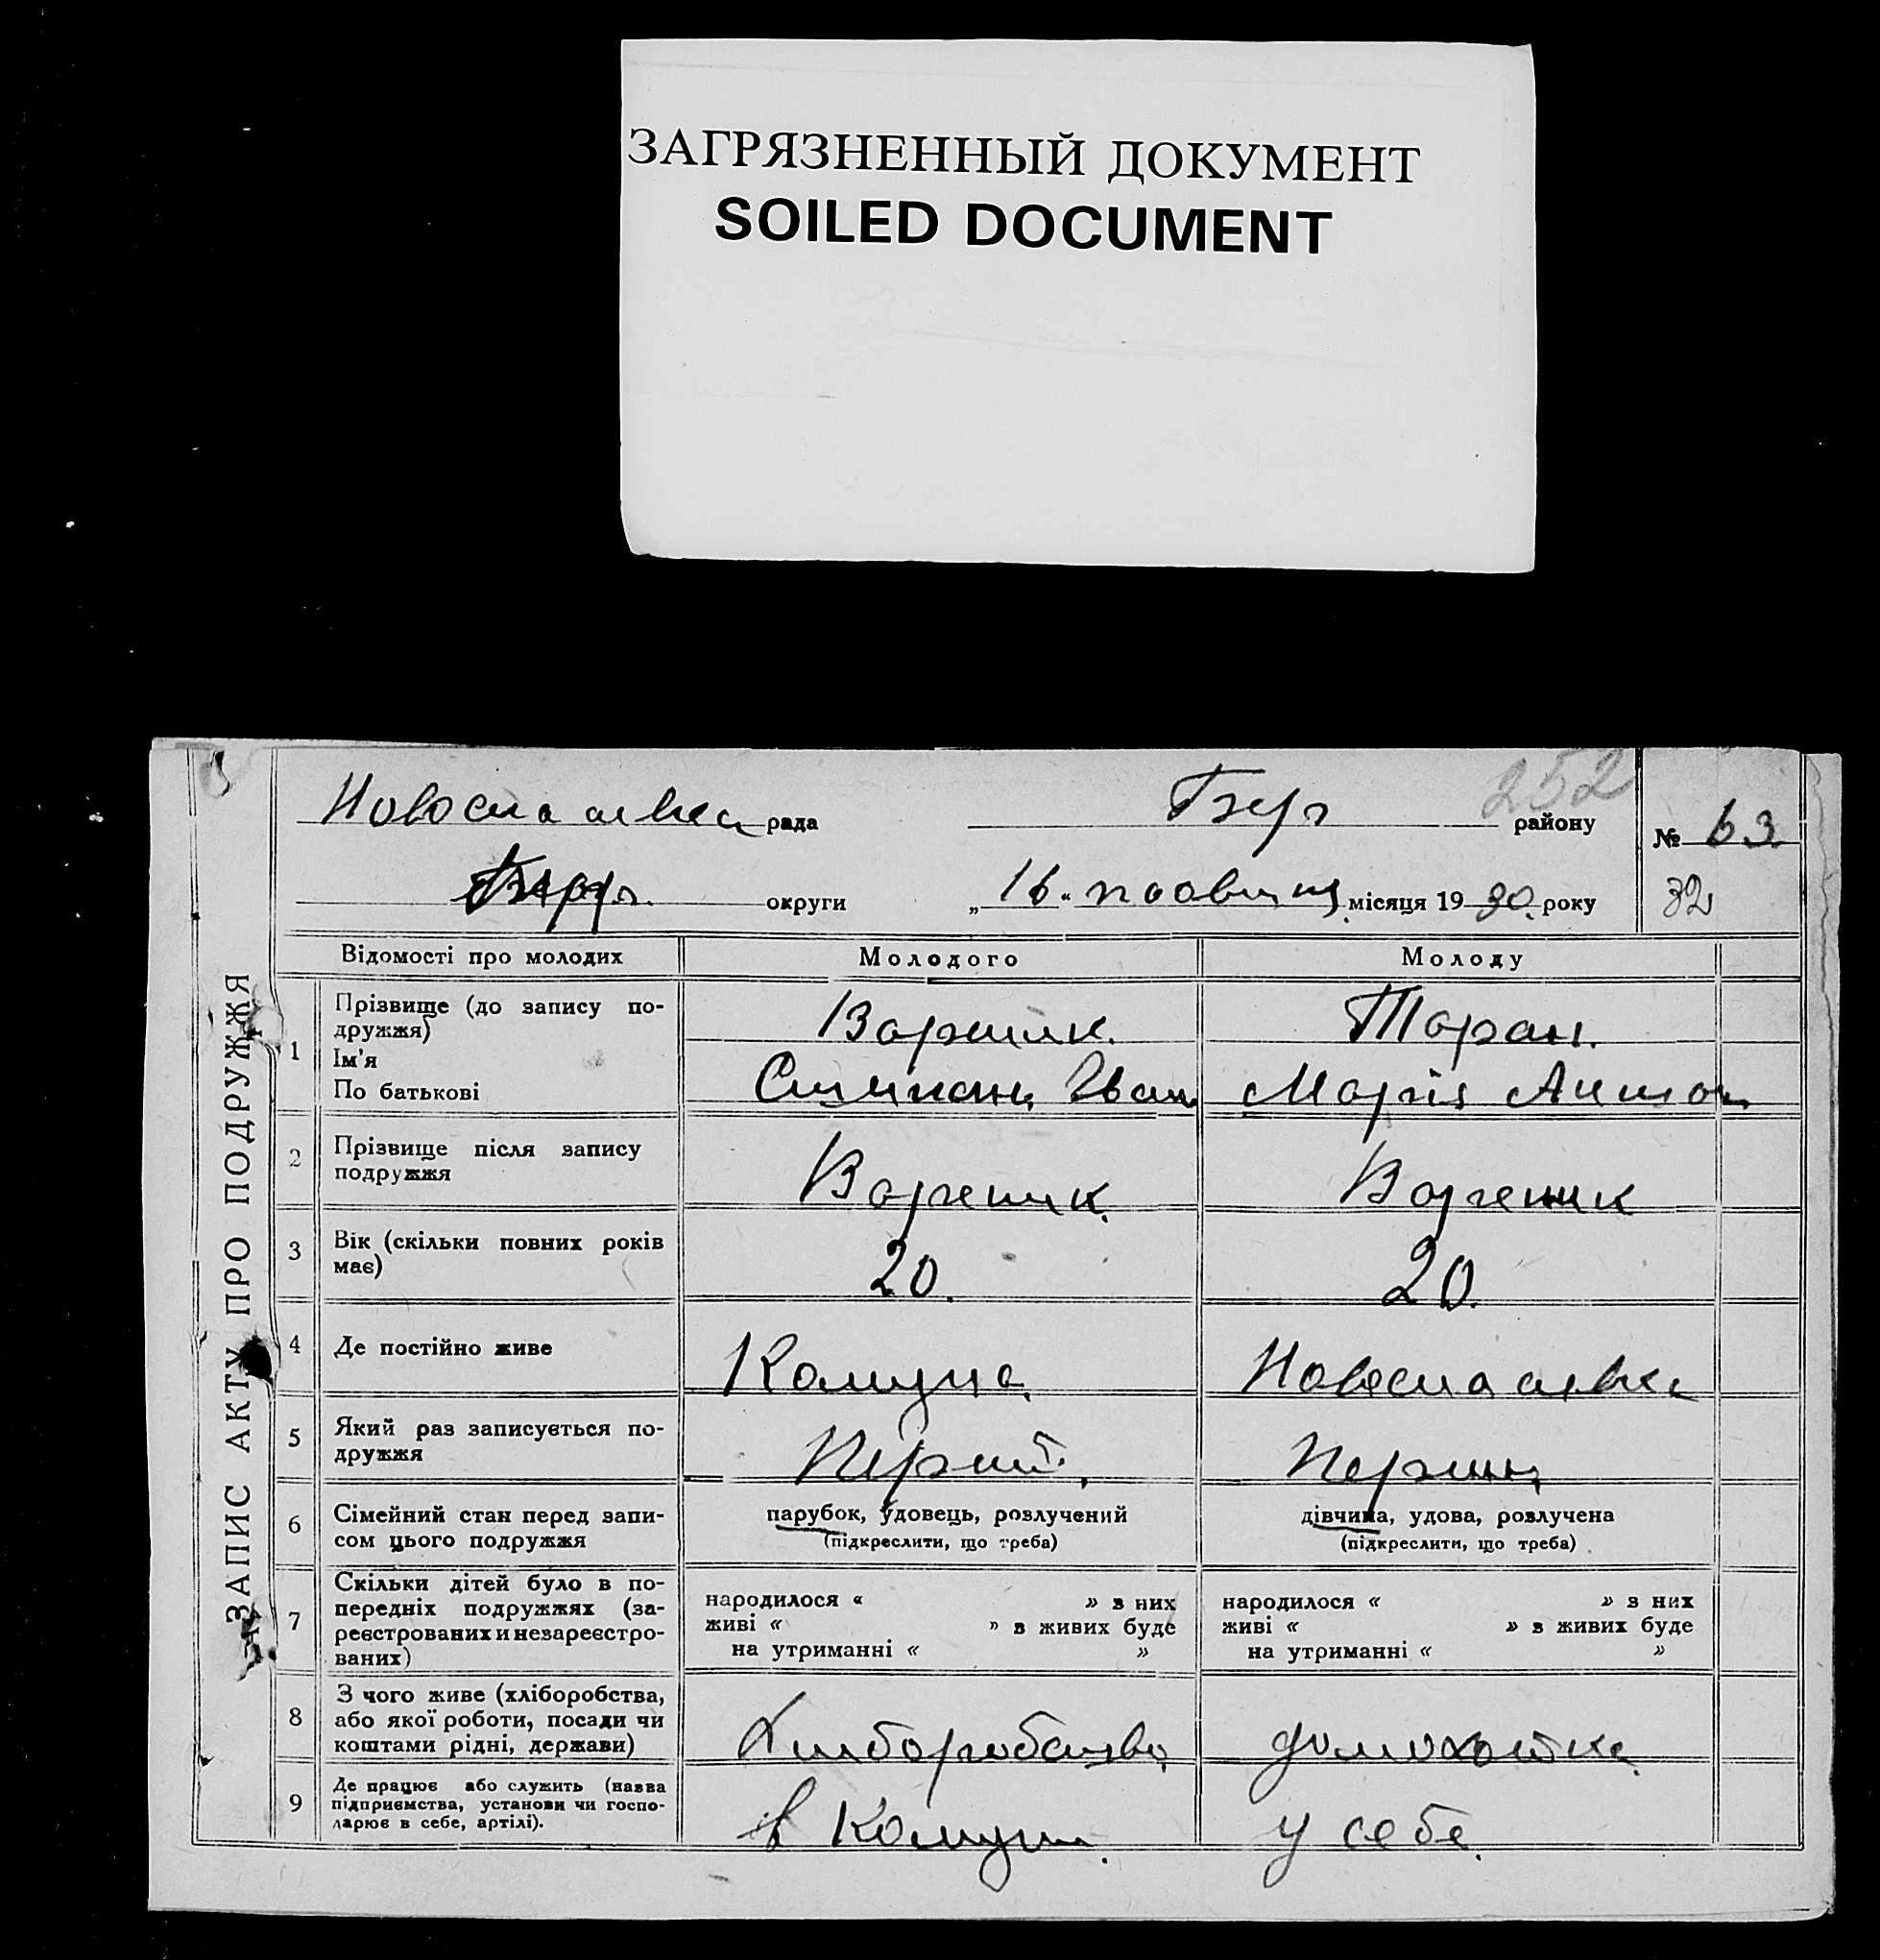 ЗАГРЯЗНЕННЫЙ ДОКУМЕНТ
SOILED DOCUMENT
252
Новоспаська рада района району № 63
округи „16“ місяця 1930 року 32
ЗАПИС АКТУ ПРО ПОДРУЖЖЯ
Відомості про молодих Молодого Молоду
1 Прізвище (до запису по-
дружжя) Вареник. Таран.
Ім'я
По батькові Степан Іван Марія Антон
2 Прізвище після запису
подружжя Вареник Вареник
3 Вік (скільки повних років
має) 20. 20.
4 Де постійно живе Комуна
5 Який раз записується по-
дружжя Перший Перший
6 Сімейний стан перед запи-
сом цього подружжя
парубок, удовець, розлучений дівчина, удова, розлучена
(підкреслити, що треба) (підкреслити, що треба)
7 Скільки дітей було в по-
передніх подружжях (за-
реєстрованих и незареєстро-
ваних)
народилося « » з них народилося « » з них
живі « » з живих буде живі « » з живих буде
на утриманні « » на утриманні « »
8 З чого живе (хліборобства,
або якої роботи, посади чи
коштами рідні, держави) Хліборобство
9 Де працює або служить (назва
підприємства, установи чи госпо-
дарює в себе, артілі). в Комуні у себе